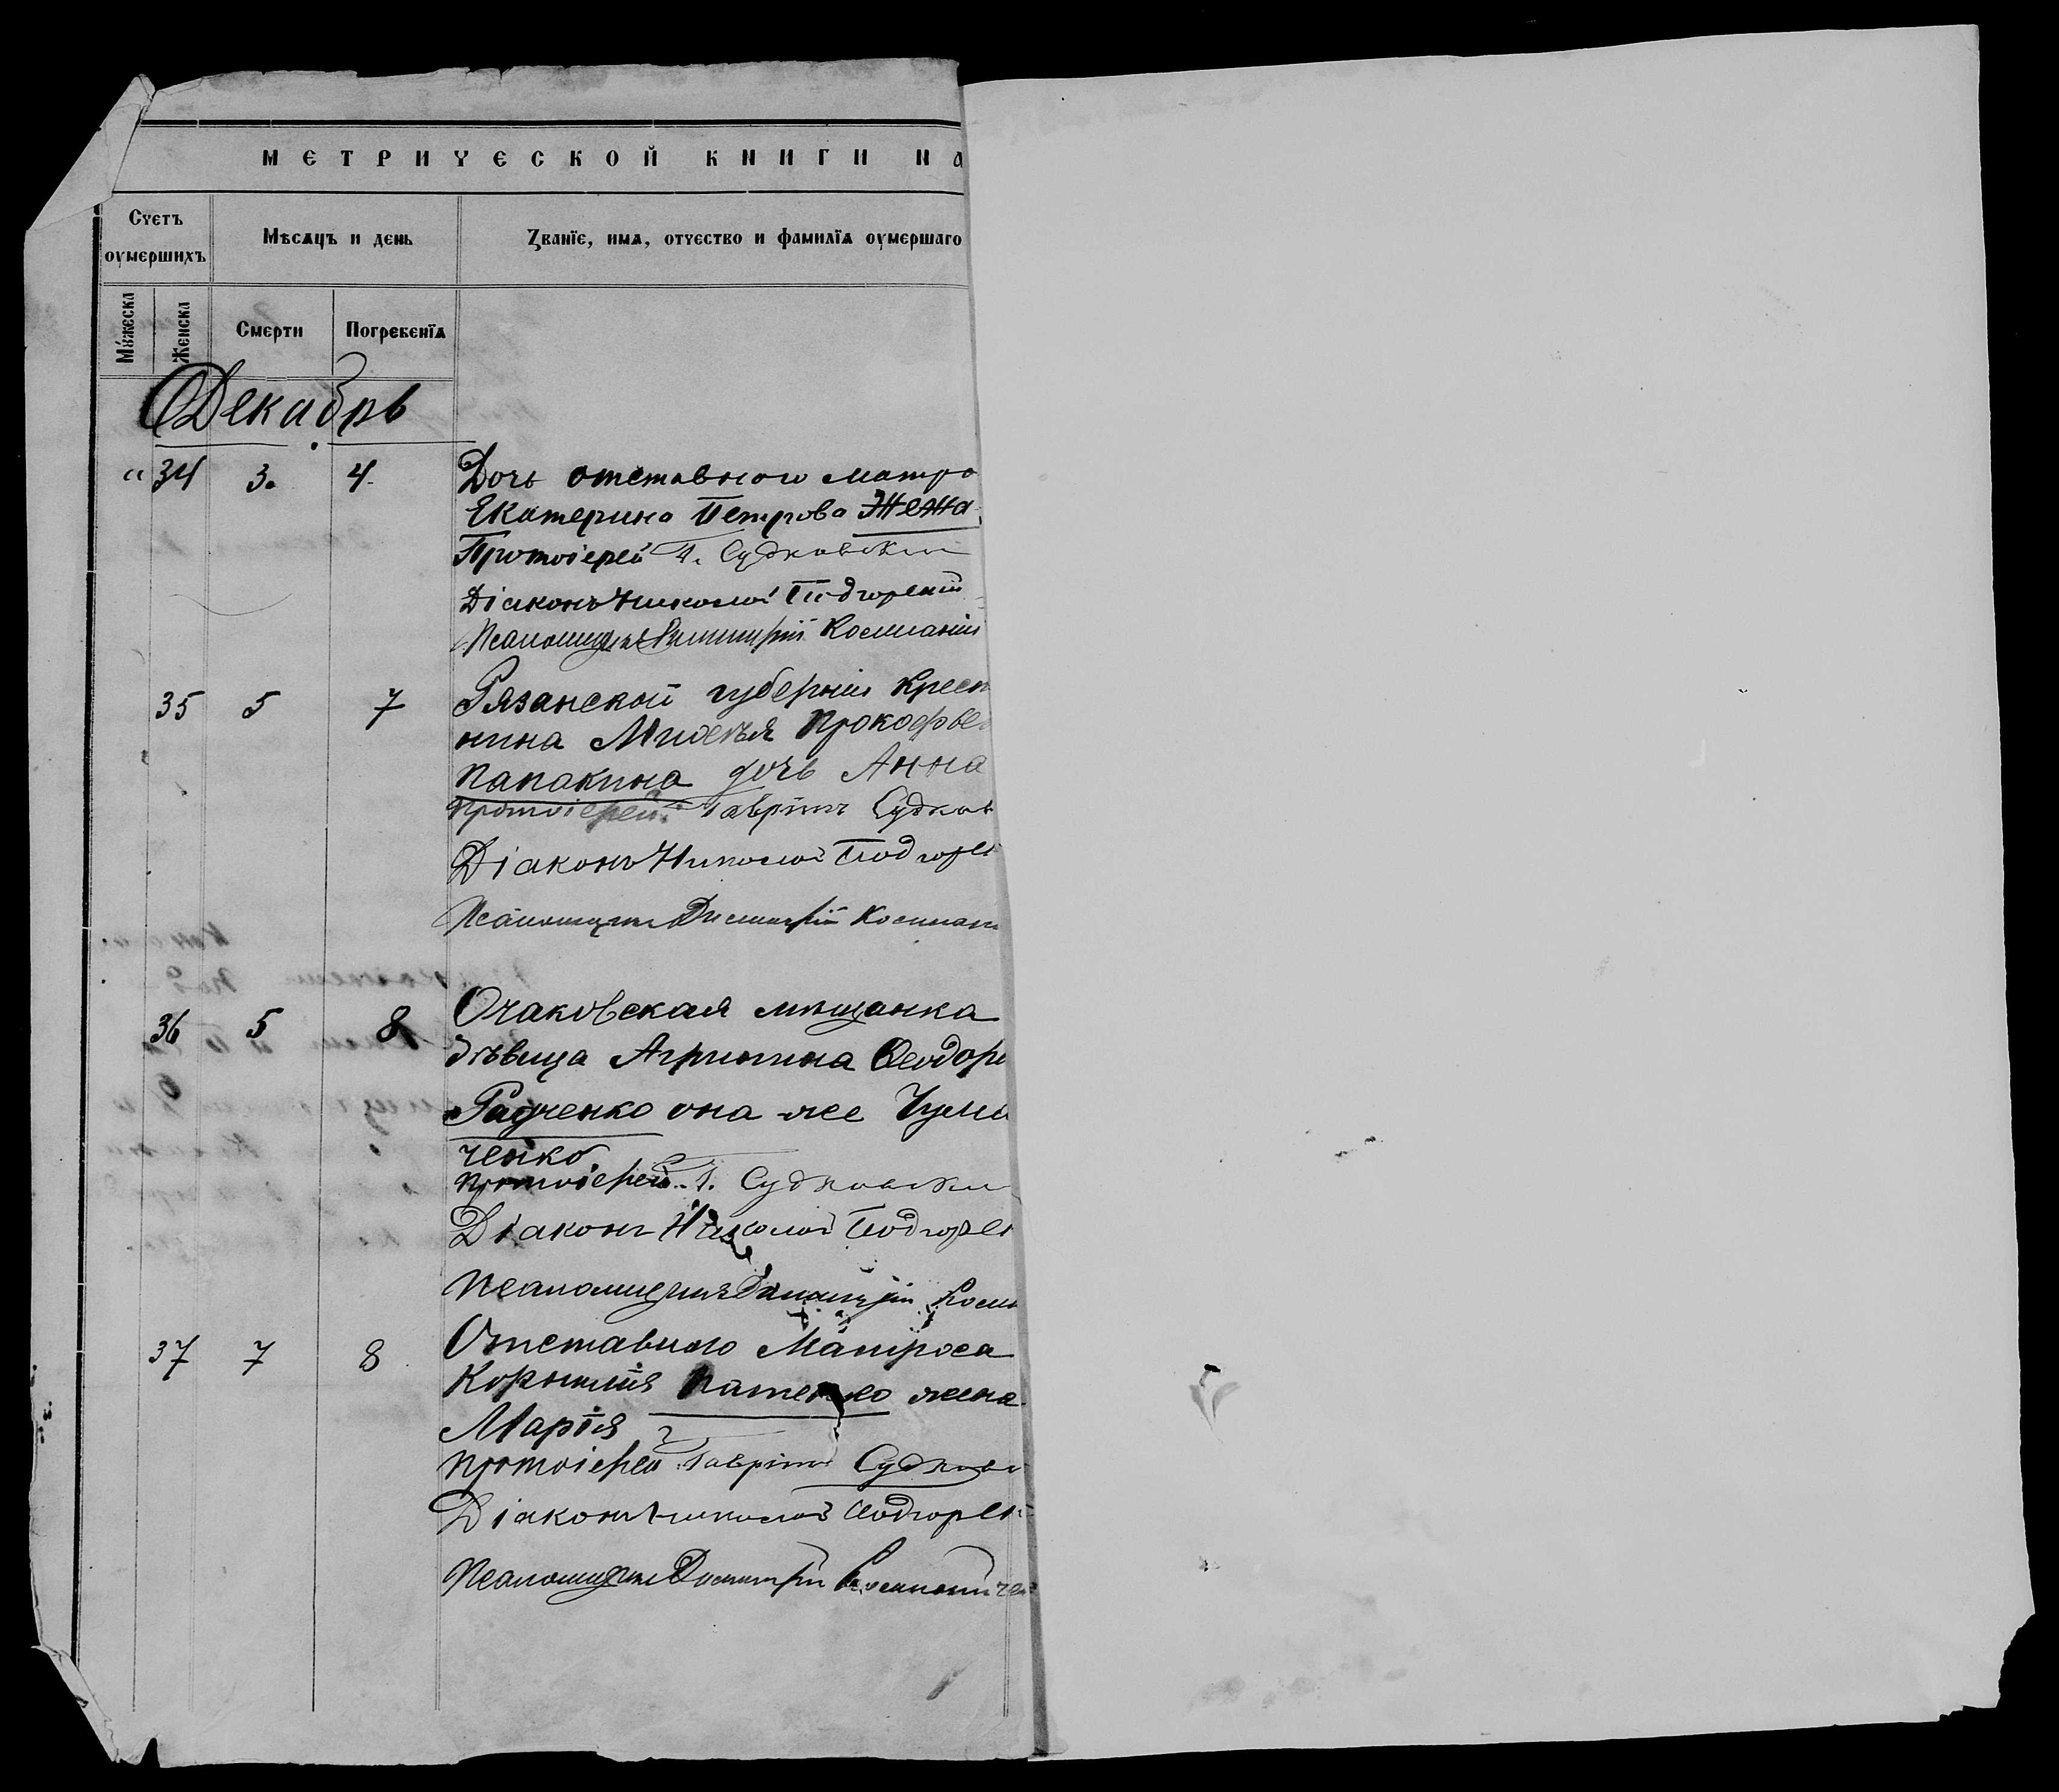 МЕТРИЧЕСКОЙ КНИГИ НА
Счетъ оумершихъ
Мѣсяцъ и день
Званїе, имя, отчество и фамилїя оумершаго
Мꙋжеска
Женска
Смерти
Погребенїя
Декабрь
" 34 3. 4. Дочь отставного матро
Екатерина Петрова Жежа
Протоіерей Г. Судковскій
Діаконъ Николай Подгорскій
Псаломщикъ Димитрій
35 5 7 Рязанской губерніи крест
нина Прокофьев
Папакина дочь Анна
Протоіерей Гавріилъ Судков
Діаконъ Николай Подгорс
Псаломщикъ Димитрій
36 5 8 Очаковская мѣщанка
дѣвица Агрипина Ѳеодоро
Радченко она же Чума
ченко
Протоіерей Г. Судковскій
Діаконъ Николай Подгорс
Псаломщикъ Димитрій
37 7 8 Отставного Матроса
Корнилія жена
Марія
Протоіерей Гавріилъ Судков
Діаконъ Николай Подгорс
Псаломщикъ Димитрій